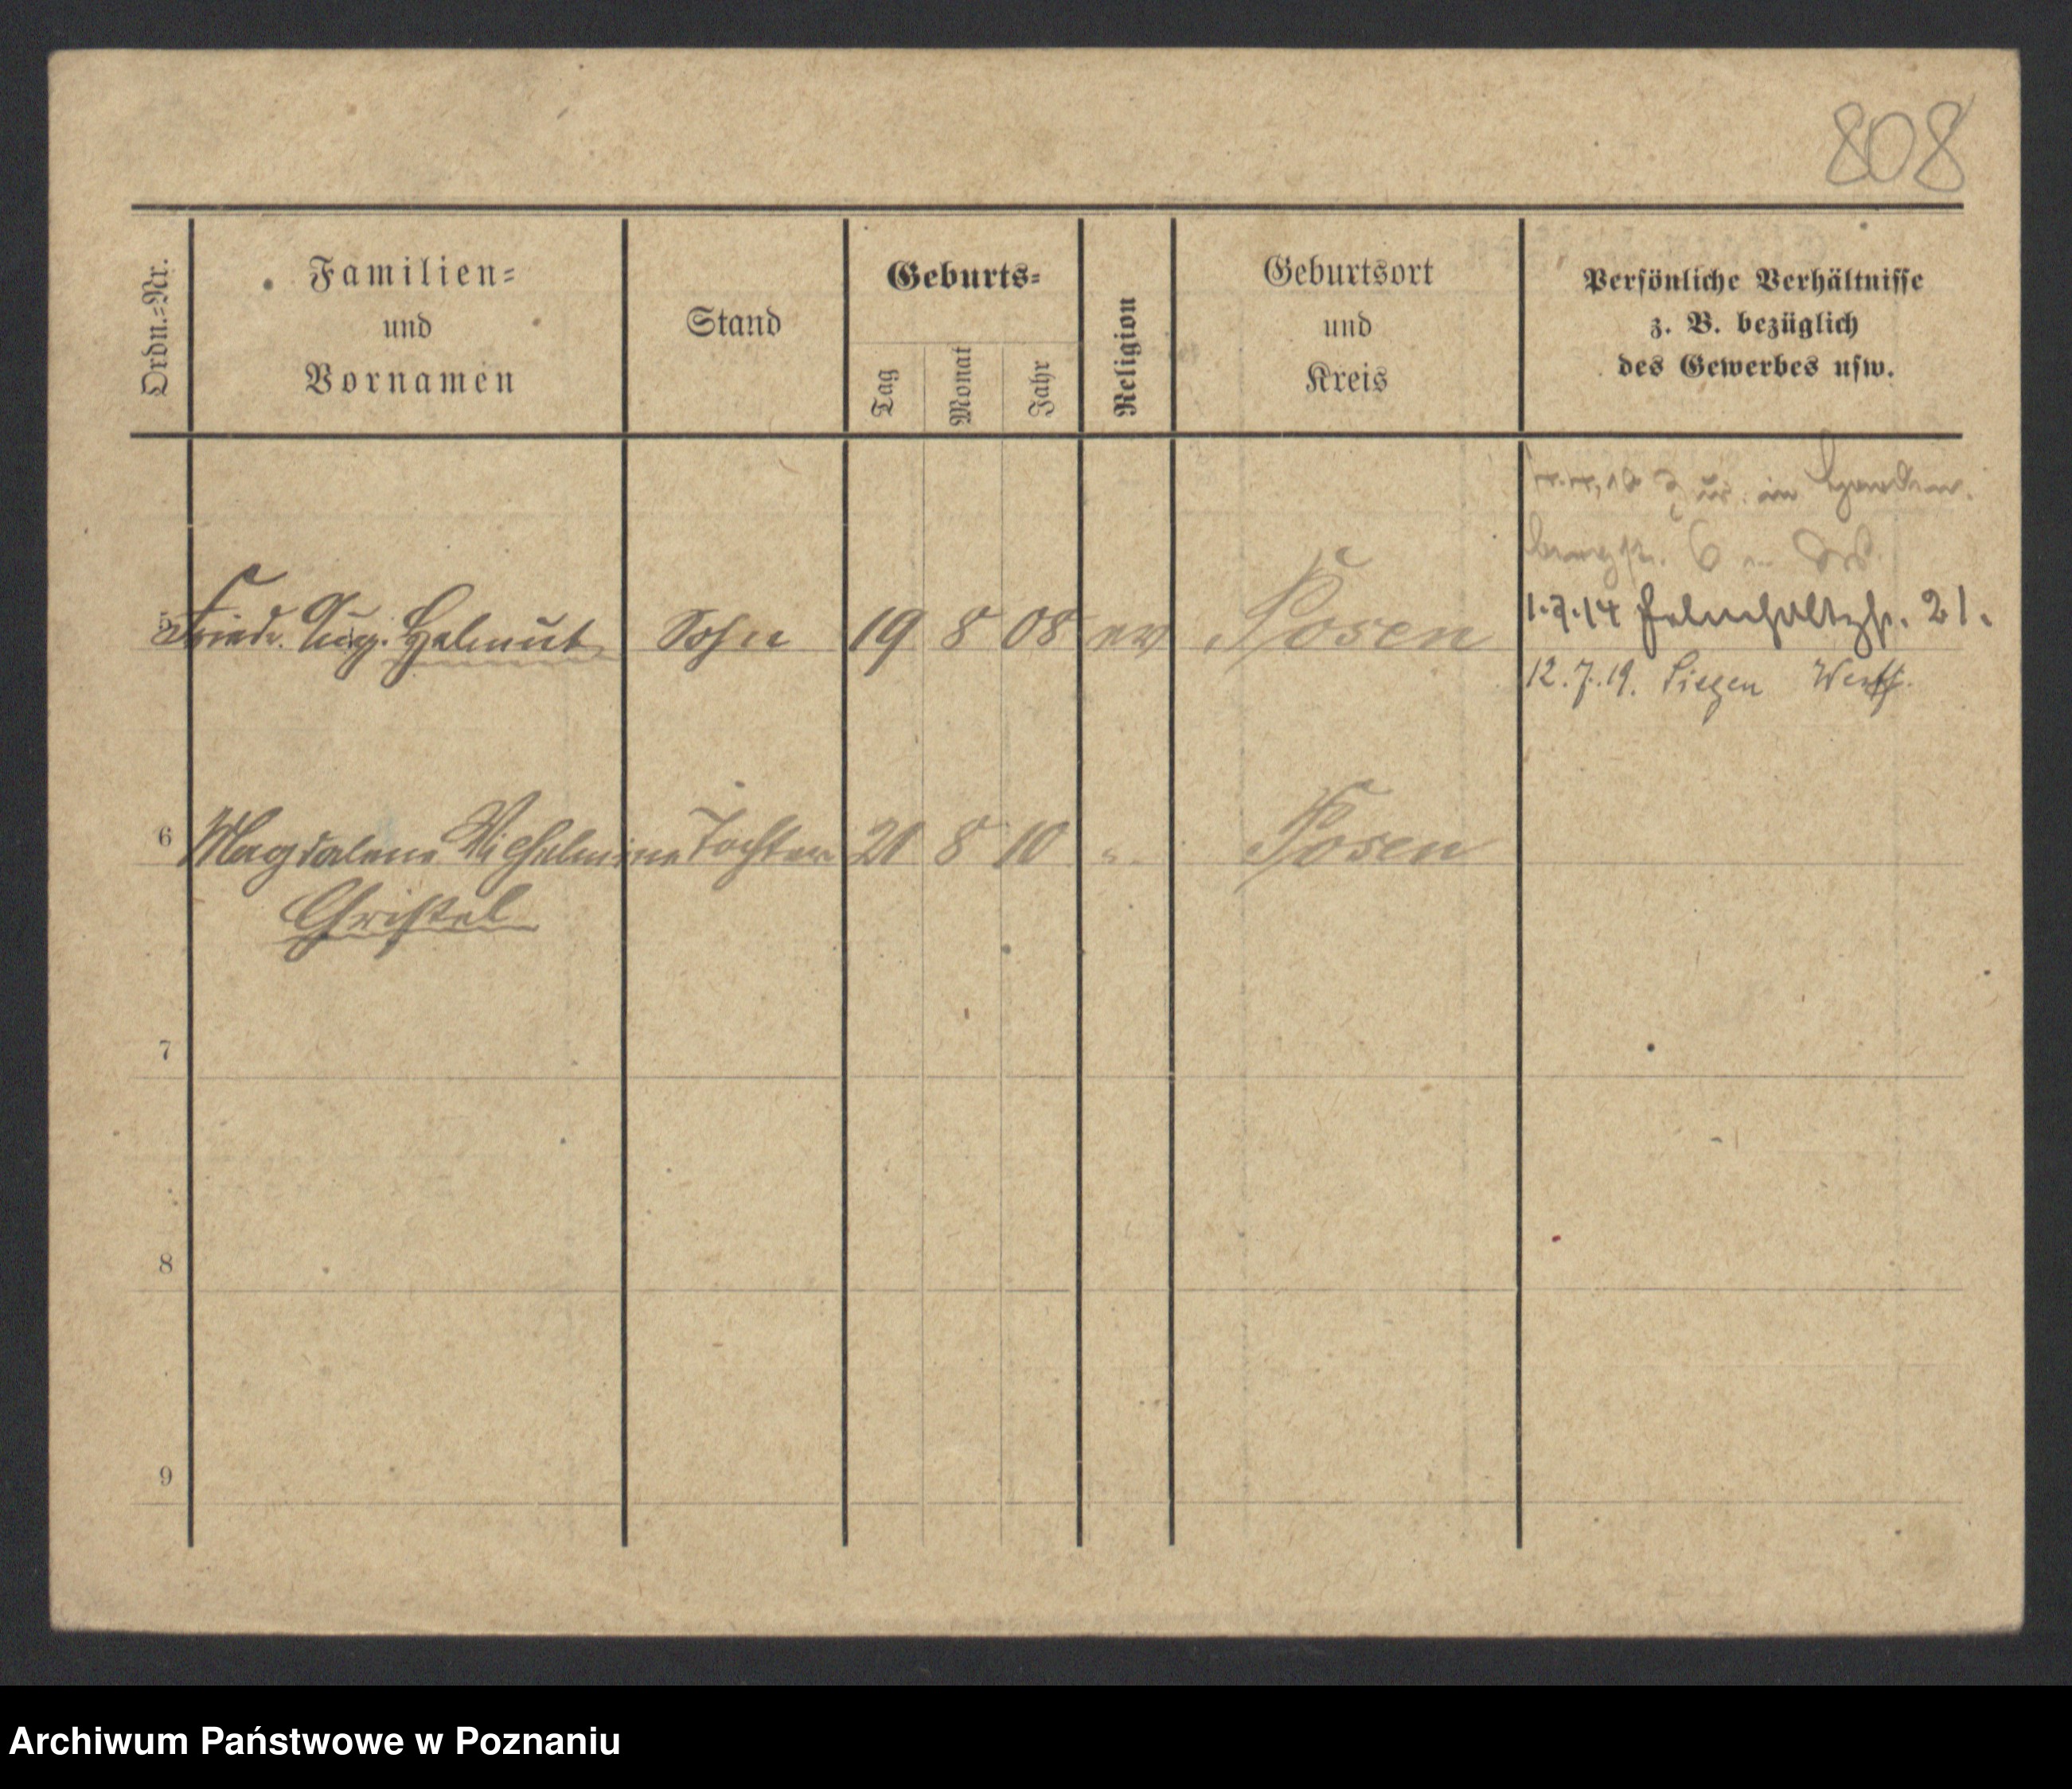 808
Ordn.-Nr.
Familien-
und
Vornamen
Stand
Geburts-
Tag
Monat
Jahr
Religion
Geburtsort
und
Kreis
Persönliche Verhältnisse
z. B. bezüglich
des Gewerbes usw.
5 Friedr. Aug. Helmut Sohn 19 8 08 ev Posen
1.7.14 Helmholtzstr. 21.
12.7.19. Siegen Westf.
6 Magdalene Wilhelmine Tochter 21 8 10 " Posen
Christel
7
8
9
Archiwum Państwowe w Poznaniu